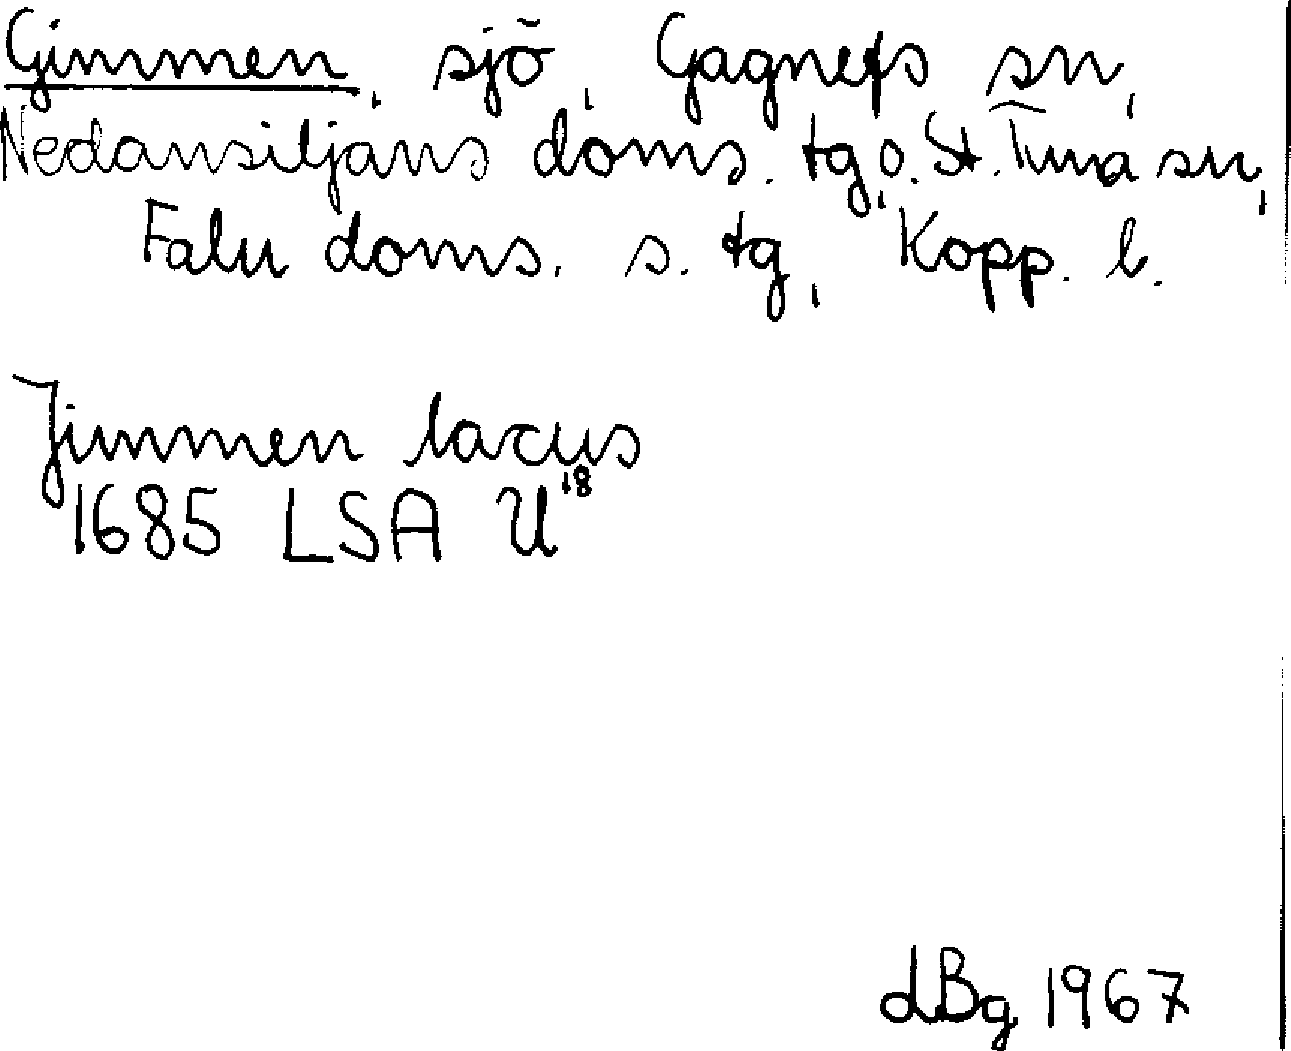 Gimmen, sjö, Gagnefs sn,
Nedansiljans doms. tg, o. St. Tuna sn,
Falu doms. s. tg, Kopp. l.
Jimmen lacus
1685 LSA U18
LBg 1967